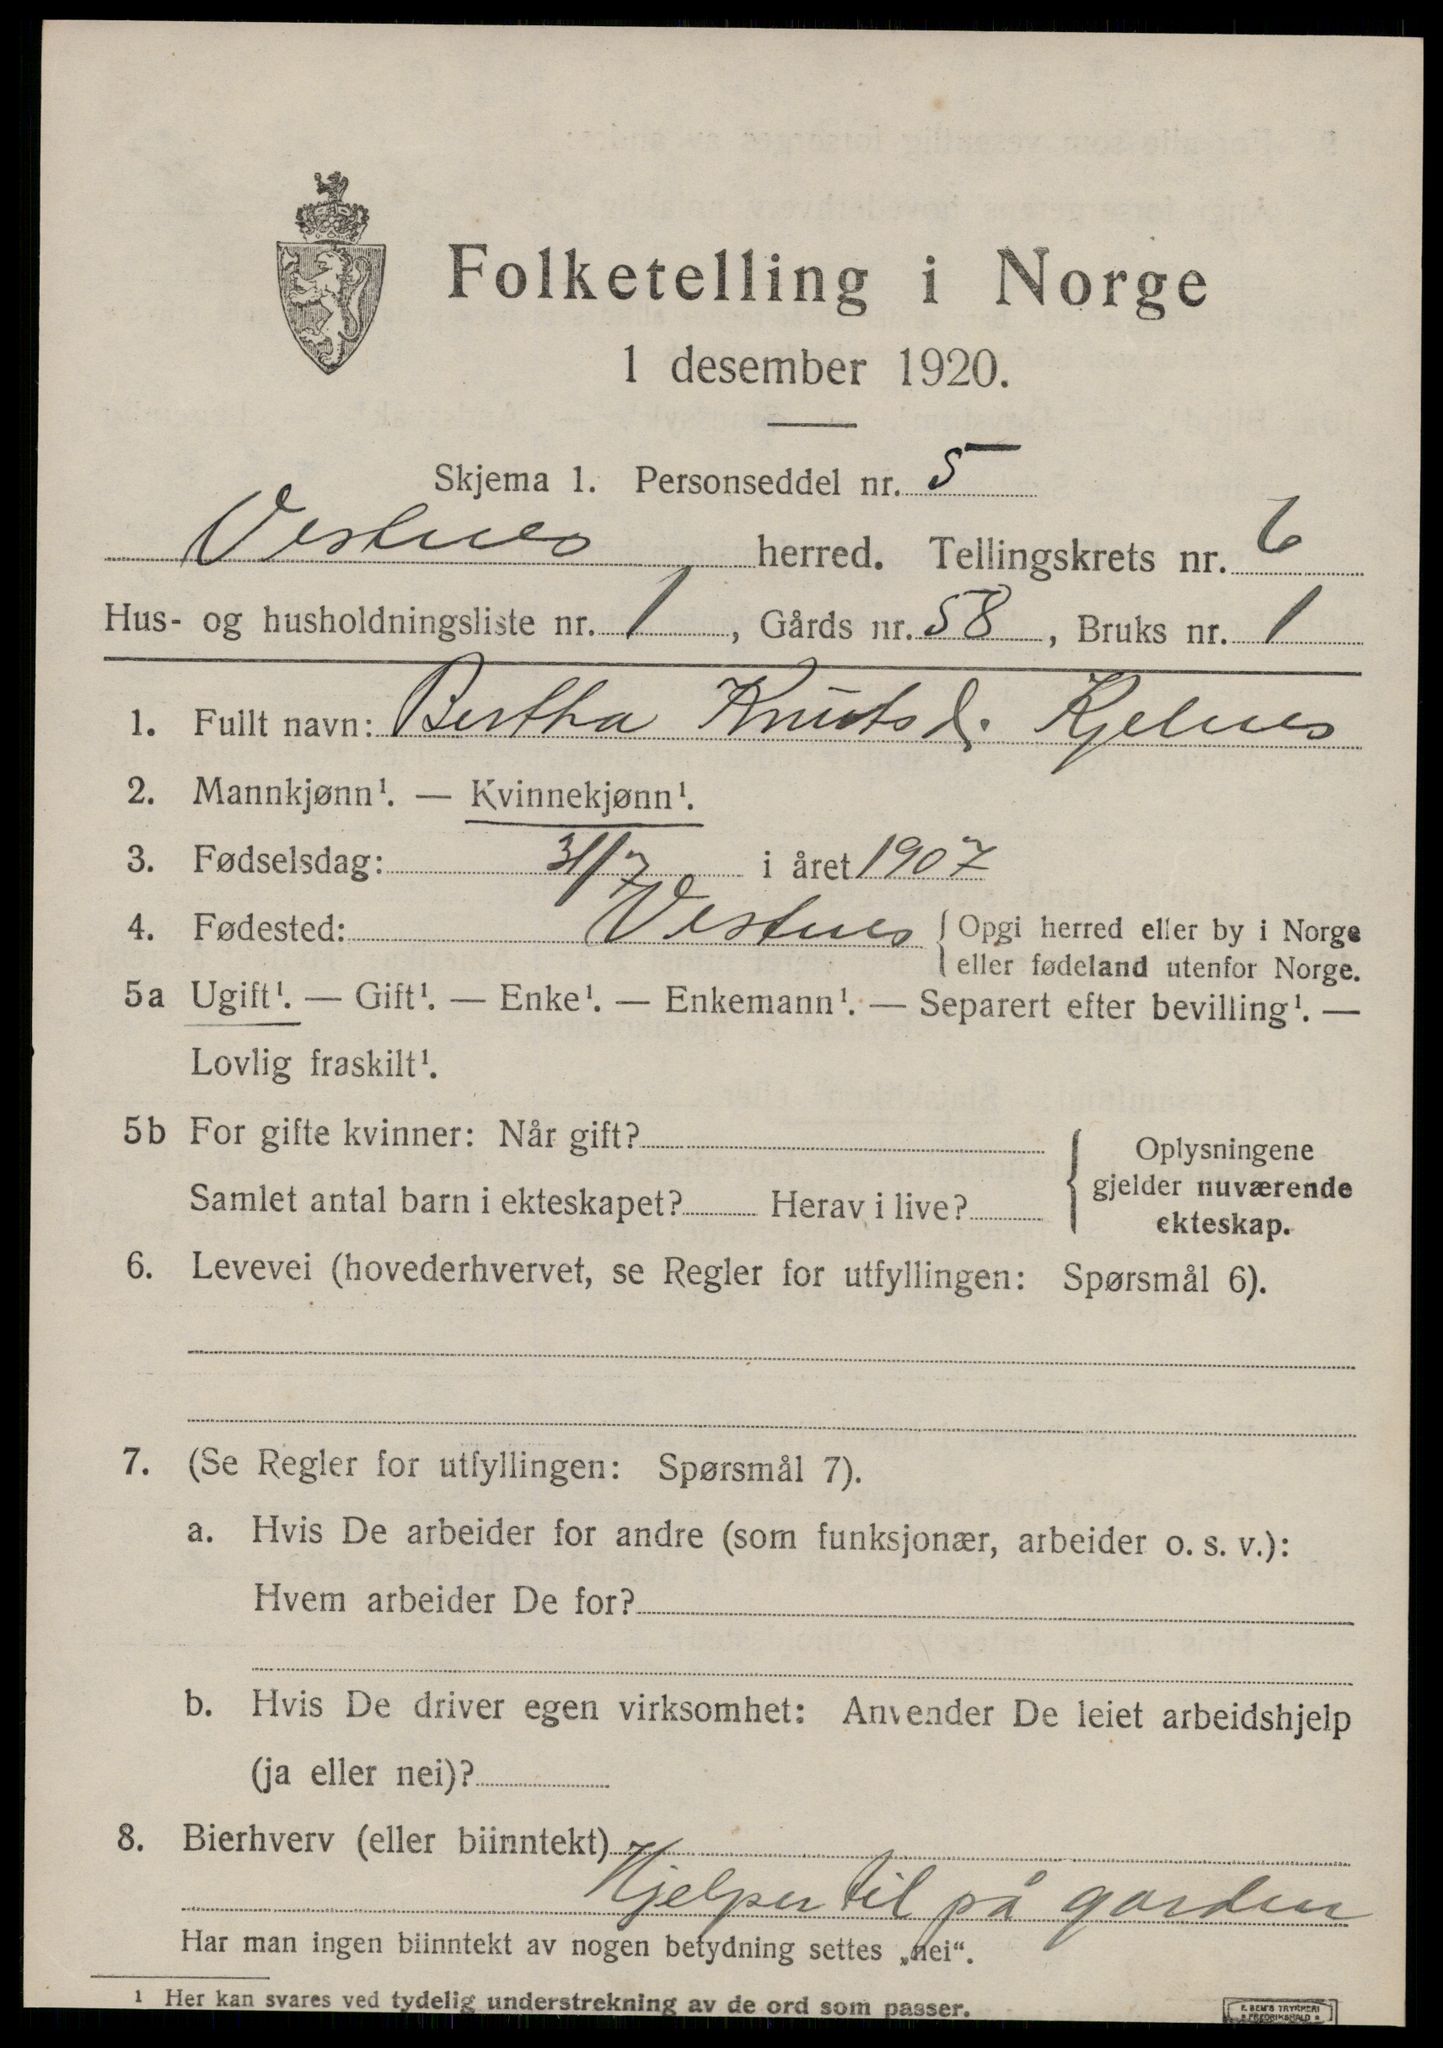 Folketelling i Norge
1 desember 1920.
Skjema 1. Personseddel nr. 5
Vestnes herred. Tellingskrets nr. 6
Hus- og husholdningsliste nr. 1, Gårds nr. 58, Bruks nr. 1
1. Fullt navn: Bertha Knutsd. Kjelnes
2. Mannkjønn¹. — Kvinnekjønn¹.
3. Fødselsdag: 31/7 i året 1907
4. Fødested: Vestnes { Opgi herred eller by i Norge
eller fødeland utenfor Norge.
5a Ugift¹. — Gift¹. — Enke¹. — Enkemann¹. — Separert efter bevilling¹. —
Lovlig fraskilt¹.
5b For gifte kvinner: Når gift?
Samlet antal barn i ekteskapet? Herav i live?
{ Oplysningene
gjelder nuværende
ekteskap.
6. Levevei (hovederhvervet, se Regler for utfyllingen: Spørsmål 6).
7. (Se Regler for utfyllingen: Spørsmål 7).
a. Hvis De arbeider for andre (som funksjonær, arbeider o. s. v.):
Hvem arbeider De for?
b. Hvis De driver egen virksomhet: Anvender De leiet arbeidshjelp
(ja eller nei)?
8. Bierhverv (eller biinntekt)
Hjelper til på garden
Har man ingen biinntekt av nogen betydning settes „nei“.
1 Her kan svares ved tydelig understrekning av de ord som passer.
E. SEM'S TRYKKERI
FREDRIKSHALD